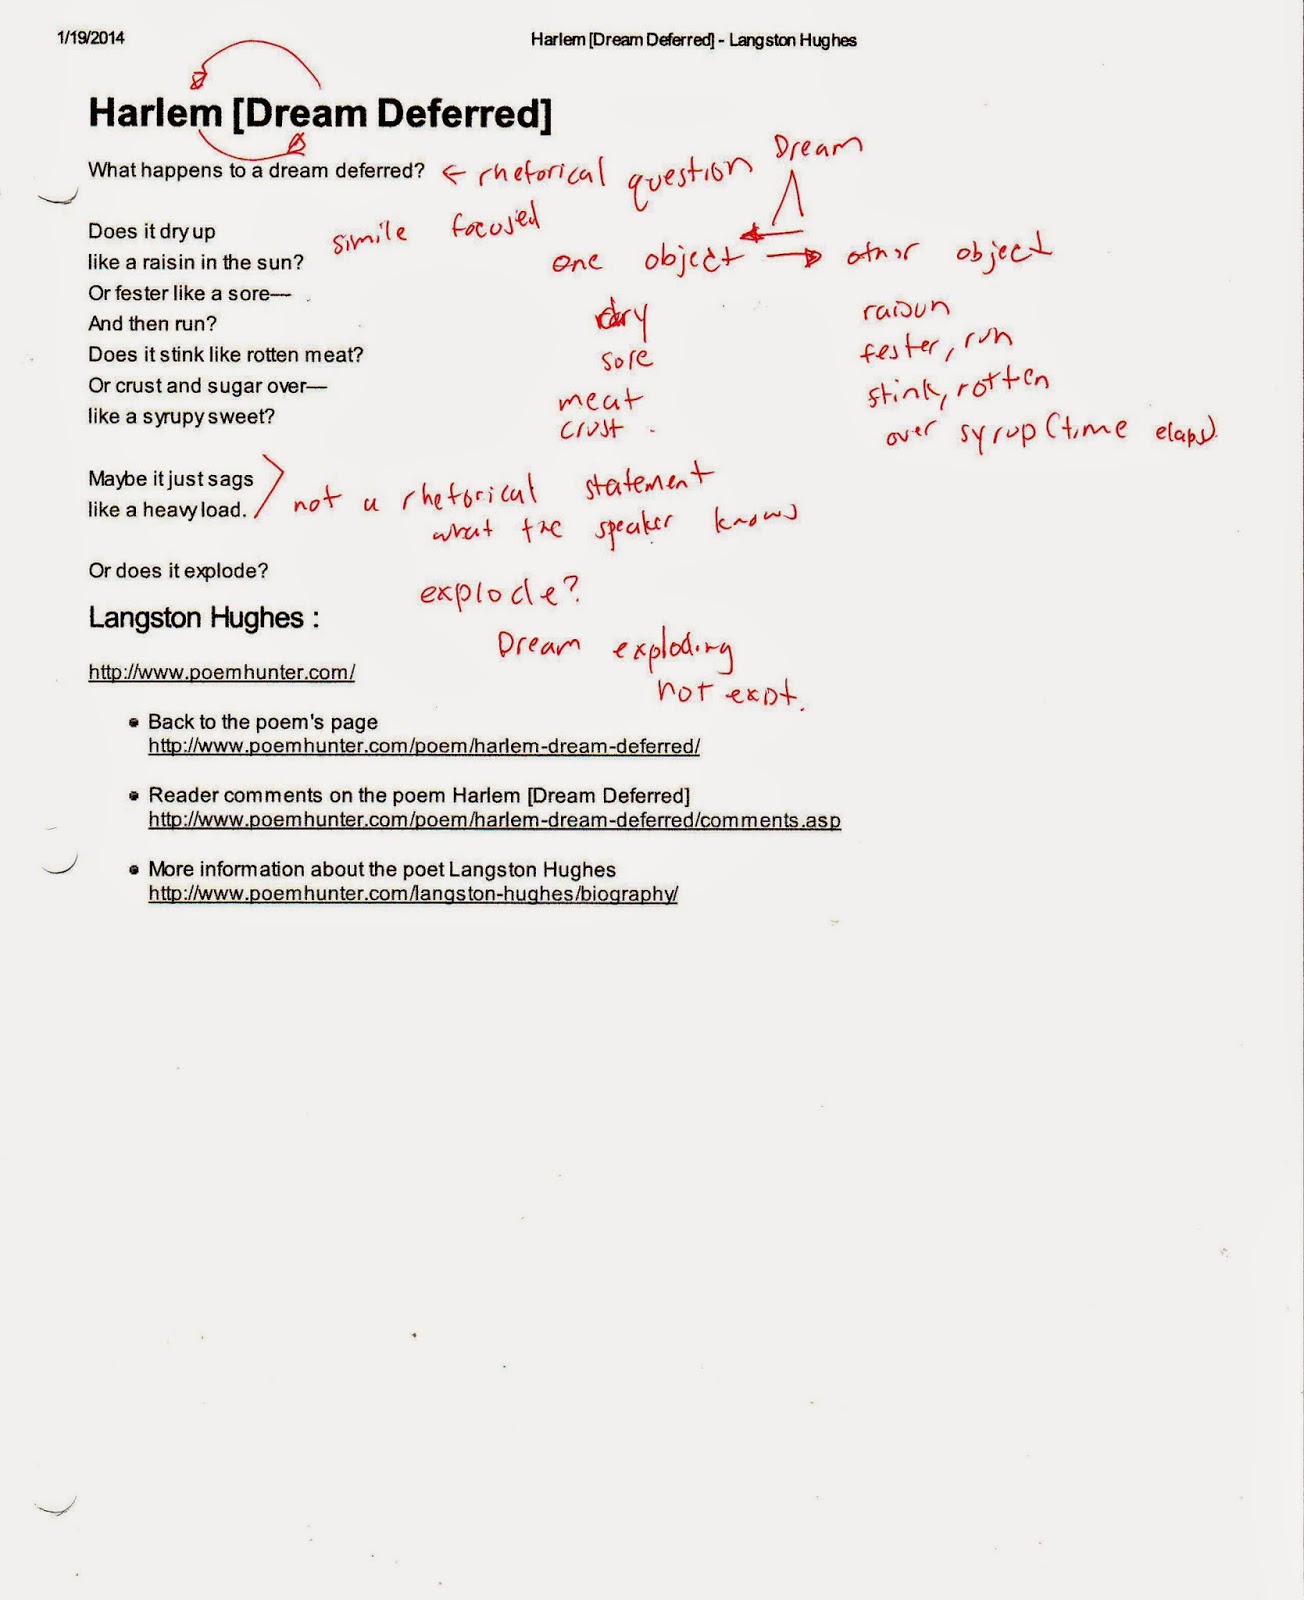 1/19/2014 Harlem [Dream Deferred] - Langston Hughes
Harlem [Dream Deferred]
What happens to a dream deferred? ← rhetorical question Dream
Does it dry up
simile focused
like a raisin in the sun? one object → other object
Or fester like a sore—
And then run? dry raisun
Does it stink like rotten meat? sore fester, run
Or crust and sugar over— meat stink, rotten
like a syrupy sweet? crust over syrup (time elaps)
Maybe it just sags
like a heavy load. not a rhetorical statement
what the speaker knows
Or does it explode?
explode?
Langston Hughes :
Dream exploding
http://www.poemhunter.com/
not exist.
Back to the poem's page
http://www.poemhunter.com/poem/harlem-dream-deferred/
Reader comments on the poem Harlem [Dream Deferred]
http://www.poemhunter.com/poem/harlem-dream-deferred/comments.asp
More information about the poet Langston Hughes
http://www.poemhunter.com/langston-hughes/biography/